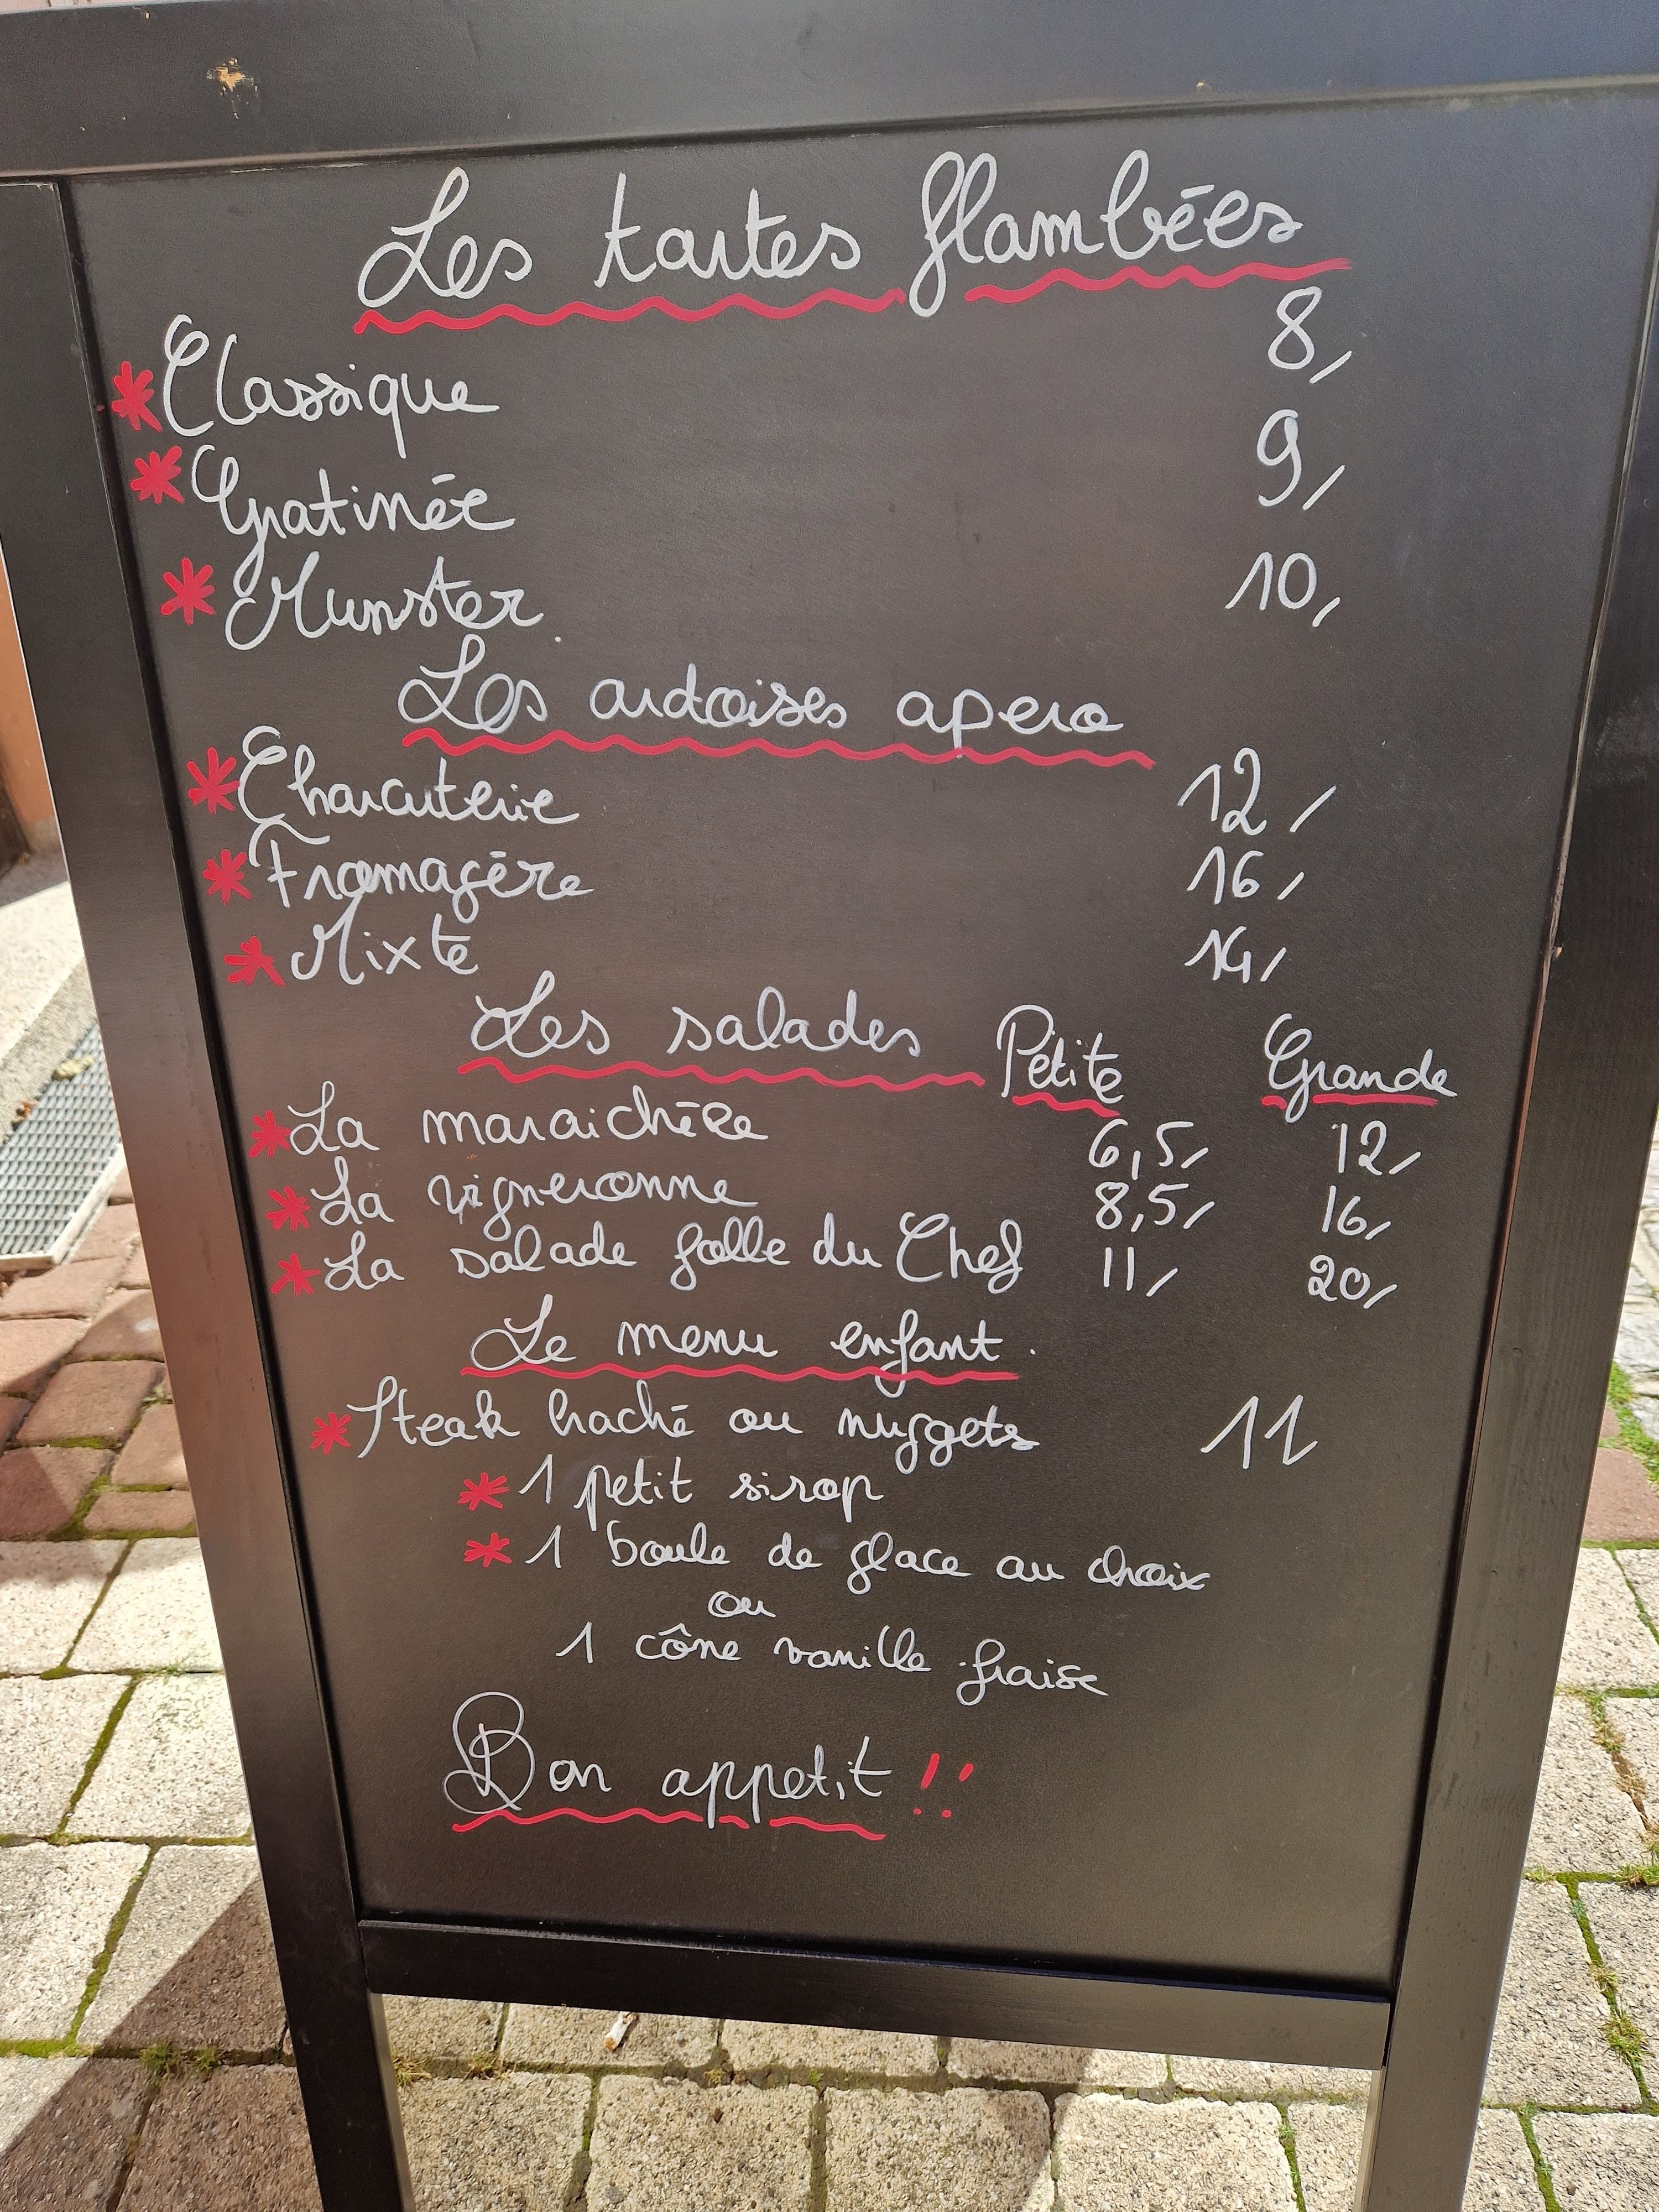 Les tartes flambées
* Classique 8,
* Gratinée 9,
* Munster. 10,
Les ardoises apero
* Charcuterie 12,
* Fromagère 16,
* Mixte 14,
Les salades Petite Grande
* La maraichère 6,5, 12,
* La vigneronne 8,5, 16,
* La salade folle du Chef 11, 20,
Le menu enfant.
* Steak haché ou nuggets 11
* 1 petit sirop
* 1 boule de glace au choix
ou
1 cône vanille fraise
Bon appetit !!